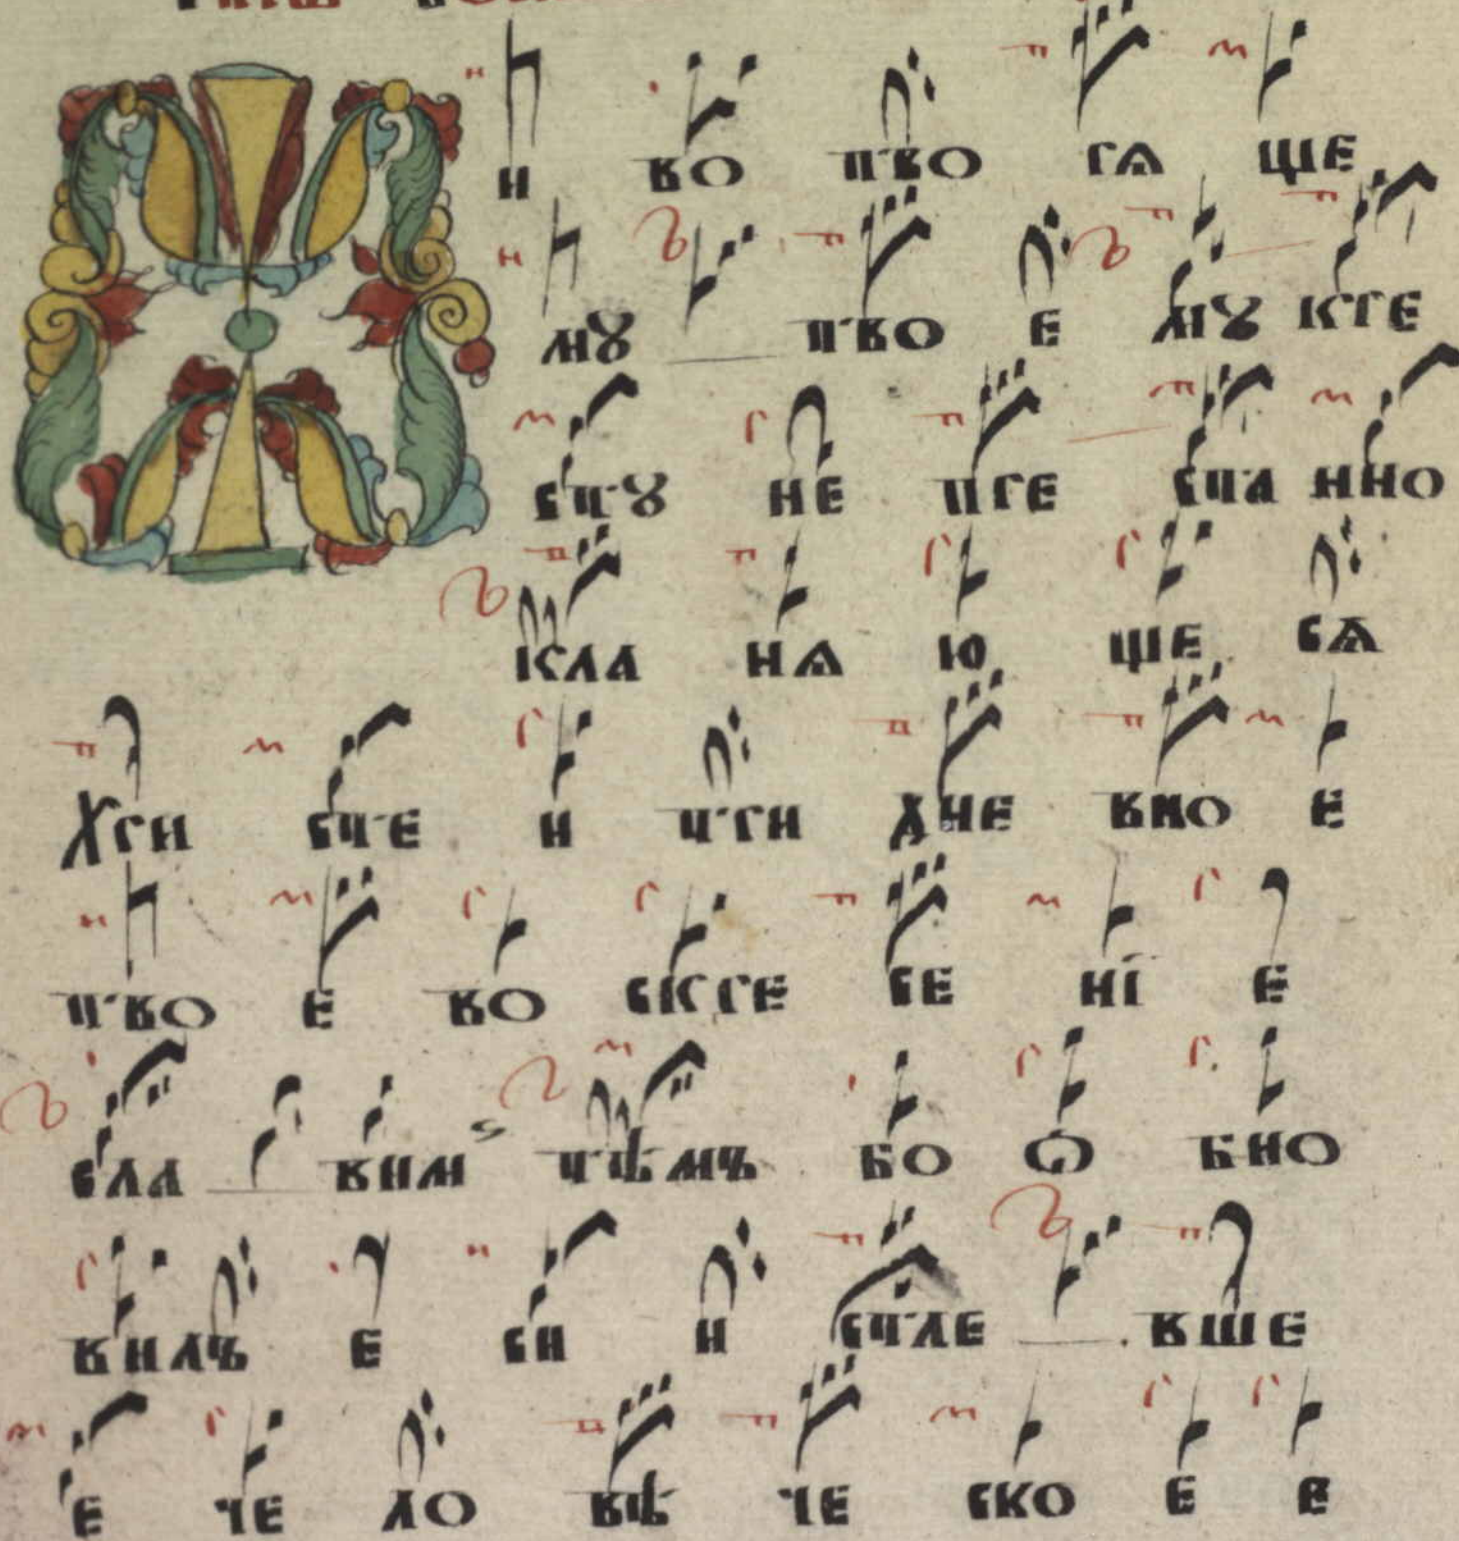 Жи во тво рѧ ще
мꙋ тво е мꙋ кре
стꙋ не пре ста нно
кла нѧ ю ще сѧ
Хри сте и три дне вно е
тво е во скре се нї е
сла вим тѣмъ бо ѡ бно
вилъ е си и стле вше
е че ло вѣ че ско е е